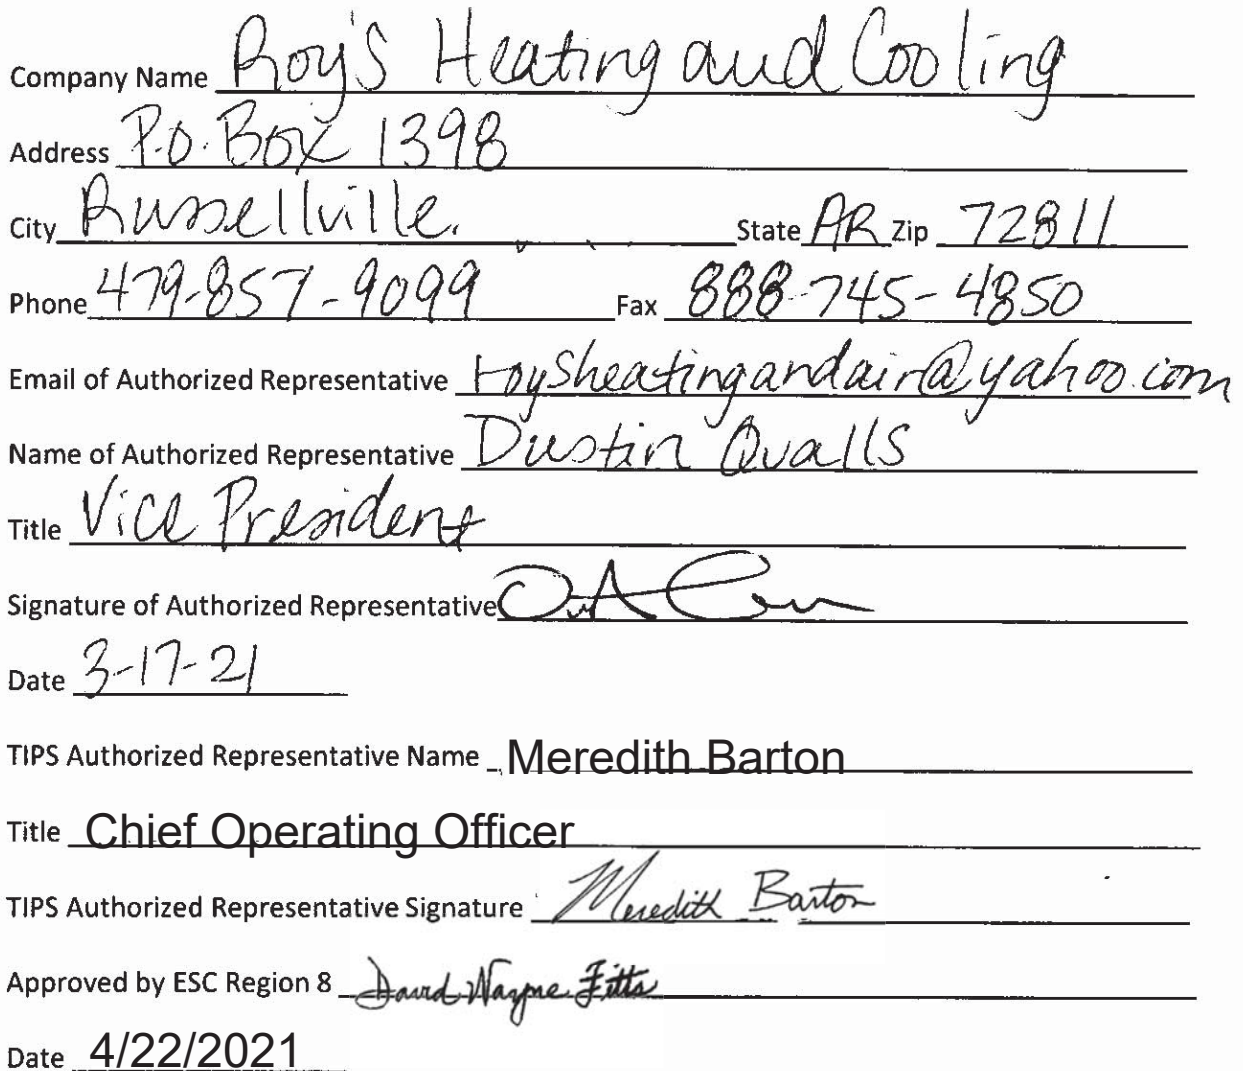 Company Name Roy's Heating and Cooling
Address P.O. Box 1398
City Russellville. State AR Zip 72811
Phone 479-857-9099 Fax 888-745-4850
Email of Authorized Representative roysheatingandair@yahoo.com
Name of Authorized Representative Dustin Qualls
Title Vice President
Signature of Authorized Representative
Date 3-17-21
TIPS Authorized Representative Name Meredith Barton
Title Chief Operating Officer
TIPS Authorized Representative Signature Meredith Barton
Approved by ESC Region 8 David Wayne Fitts
Date 4/22/2021